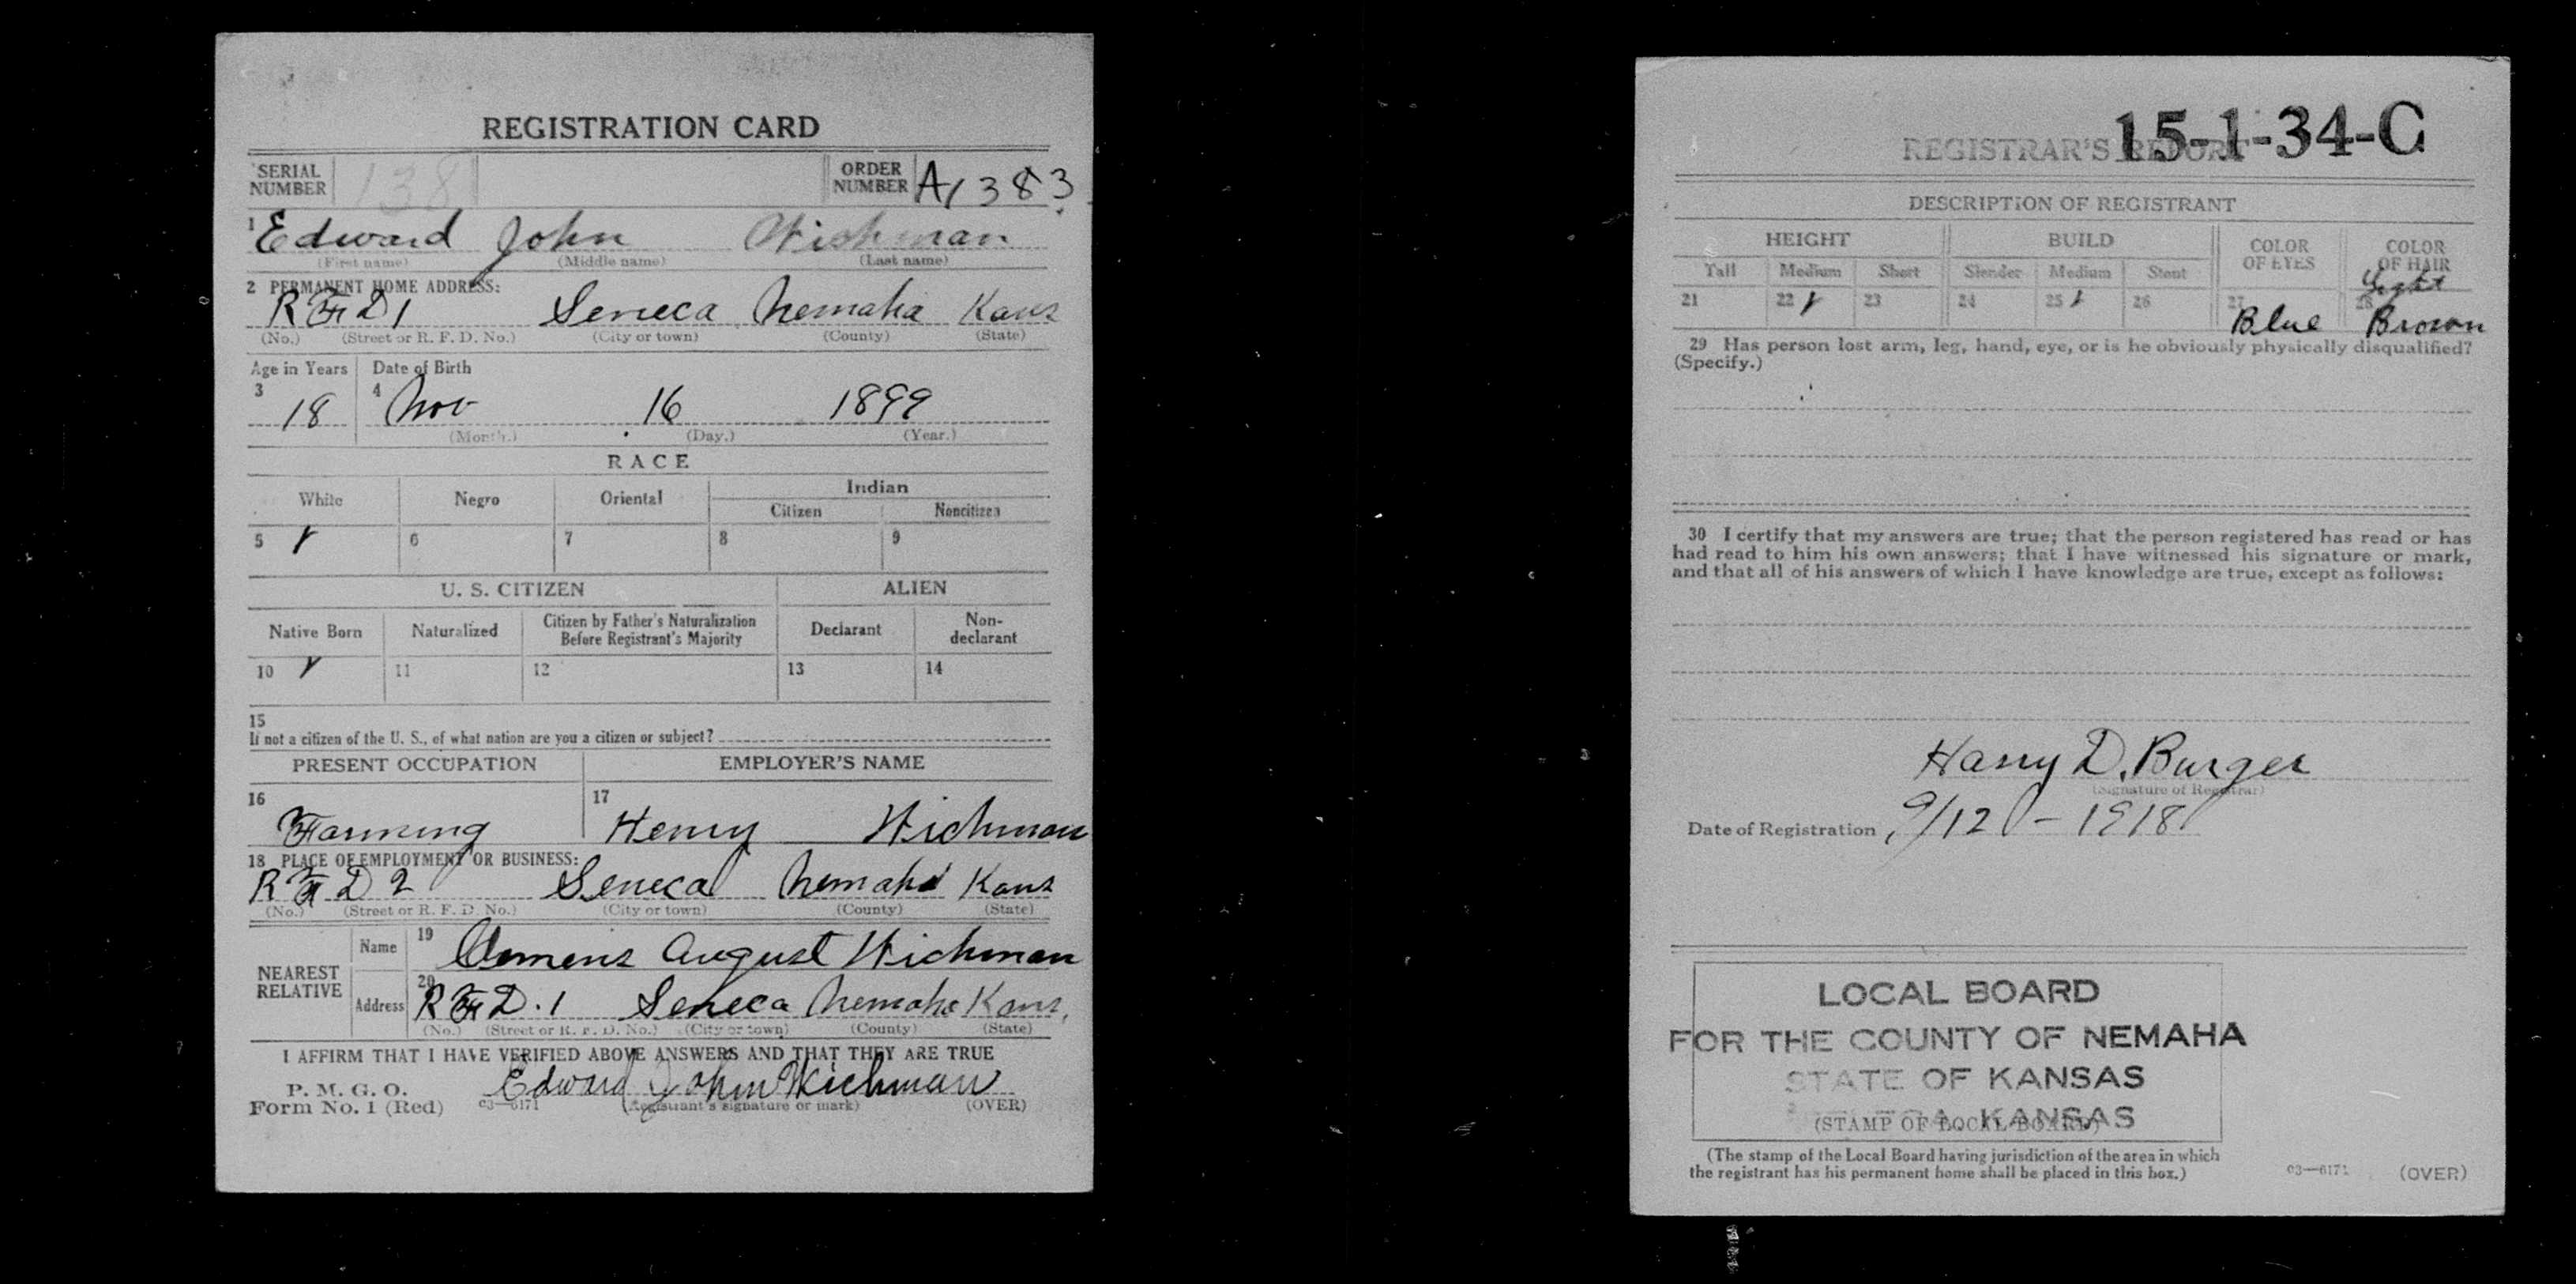 REGISTRATION CARD
SERIAL NUMBER 138 ORDER NUMBER A1383
1 Edward John Wichman
(First name) (Middle name) (Last name)
2 PERMANENT HOME ADDRESS:
R F D 1 Seneca Nemaha Kans
(No.) (Street or R. F. D. No.) (City or town) (County) (State)
Age in Years Date of Birth
3 18 4 Nov 16 1899
(Month.) (Day.) (Year.)
RACE
White Negro Oriental Indian
Citizen Noncitizen
5 6 7 8 9
U. S. CITIZEN ALIEN
Native Born Naturalized Citizen by Father's Naturalization Before Registrant's Majority Declarant Non-declarant
10 11 12 13 14
15
If not a citizen of the U. S., of what nation are you a citizen or subject?
PRESENT OCCUPATION EMPLOYER'S NAME
16 Farming 17 Henry Wichman
18 PLACE OF EMPLOYMENT OR BUSINESS:
R F D 2 Seneca Nemaha Kans
(No.) (Street or R. F. D. No.) (City or town) (County) (State)
NEAREST RELATIVE
Name 19 Clemens August Wichman
Address 20 R F D. 1 Seneca Nemaha Kans,
(No.) (Street or R. F. D. No.) (City or town) (County) (State)
I AFFIRM THAT I HAVE VERIFIED ABOVE ANSWERS AND THAT THEY ARE TRUE
P. M. G. O.
Form No. 1 (Red) 03—6171 Edward John Wichman
(Registrant's signature or mark) (OVER)
15-1-34-C
REGISTRAR'S REPORT
DESCRIPTION OF REGISTRANT
HEIGHT BUILD COLOR OF EYES COLOR OF HAIR
Tall Medium Short Slender Medium Stout
21 22 23 24 25 26 27 Blue 28 Light Brown
29 Has person lost arm, leg, hand, eye, or is he obviously physically disqualified?
(Specify.)
30 I certify that my answers are true; that the person registered has read or has
had read to him his own answers; that I have witnessed his signature or mark,
and that all of his answers of which I have knowledge are true, except as follows:
Harry D. Burger
(Signature of Registrar)
Date of Registration 9/12 - 1918
LOCAL BOARD
FOR THE COUNTY OF NEMAHA
STATE OF KANSAS
KANSAS
(STAMP OF LOCAL BOARD)
(The stamp of the Local Board having jurisdiction of the area in which
the registrant has his permanent home shall be placed in this box.)
03—6171 (OVER)